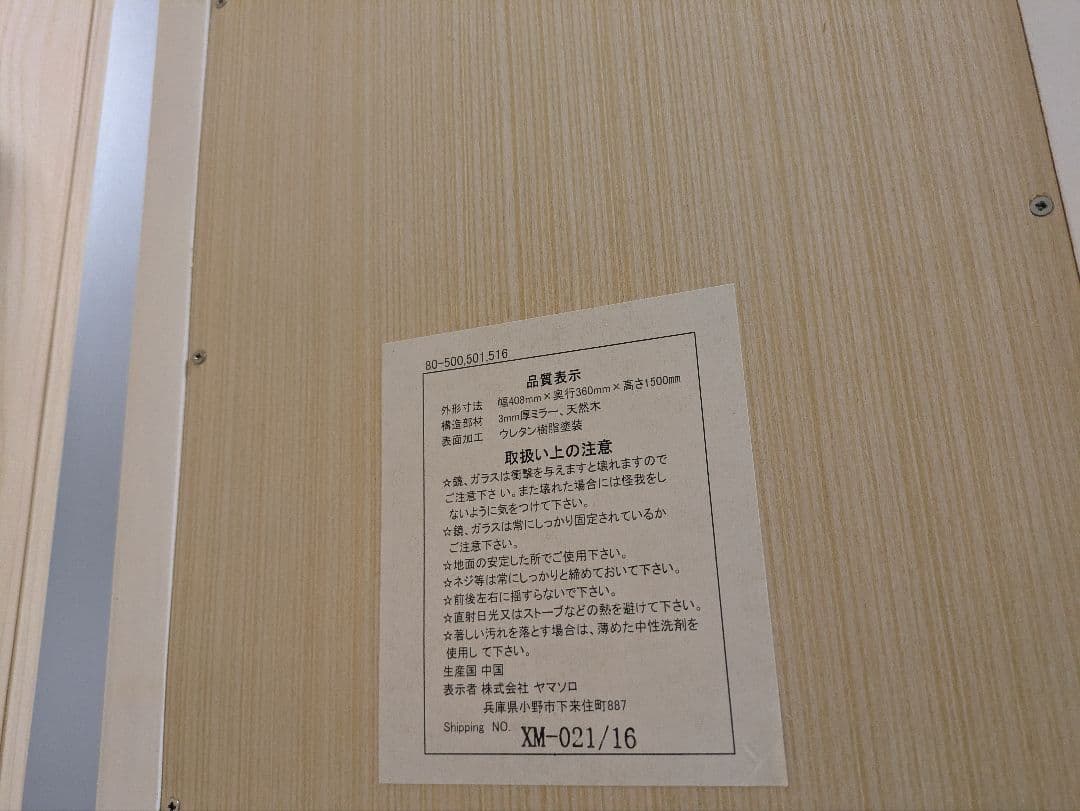 80-500,501,516
品質表示
外形寸法 幅408mm×奥行360mm×高さ1500mm
構造部材 3mm厚ミラー、天然木
表面加工 ウレタン樹脂塗装
取扱い上の注意
☆鏡、ガラスは衝撃を与えますと壊れますので
ご注意下さい。また壊れた場合には怪我をし
ないように気をつけて下さい。
☆鏡、ガラスは常にしっかり固定されているか
ご注意下さい。
☆地面の安定した所でご使用下さい。
☆ネジ等は常にしっかりと締めておいて下さい。
☆前後左右に揺すらないで下さい。
☆直射日光又はストーブなどの熱を避けて下さい。
☆著しい汚れを落とす場合は、薄めた中性洗剤を
使用して下さい。
生産国 中国
表示者 株式会社 ヤマソロ
兵庫県小野市下来住町887
Shipping NO. XM-021/16